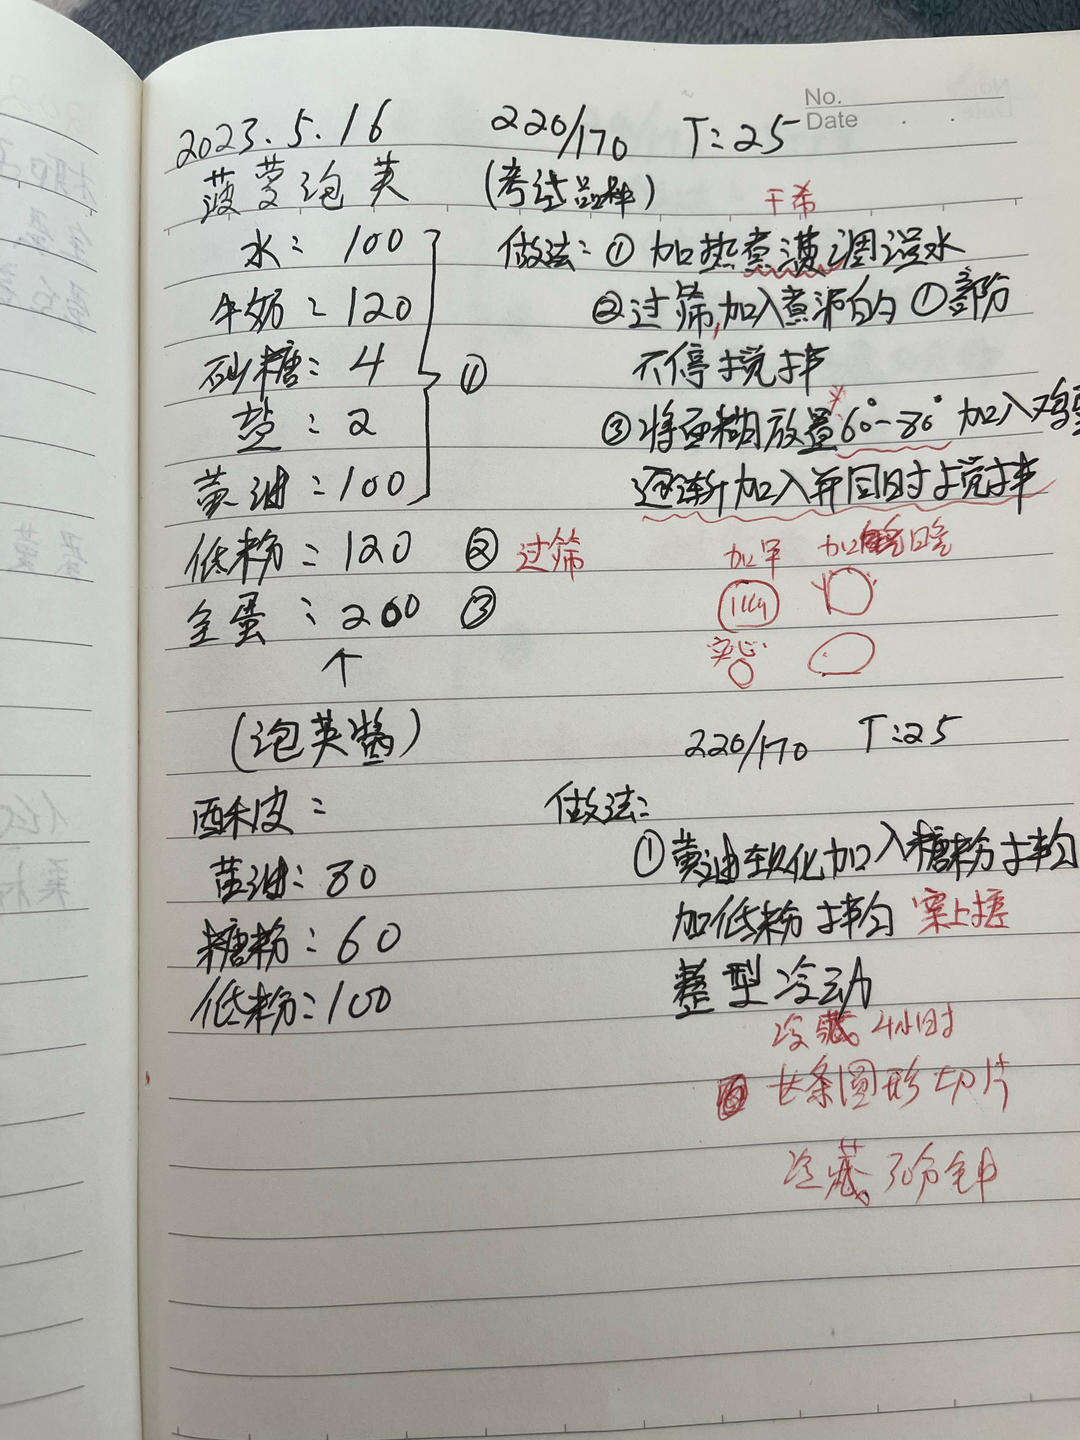 No.
Date
2023.5.16 220/170 T:25
菠萝泡芙 (考试品种)
干希
水: 100 做法: ① 加热煮沸调湿水
牛奶: 120 ②过筛,加入煮沸的①部分
砂糖: 4 ① 不停搅拌
盐: 2 ③将面糊放置60°-80°加入鸡蛋
黄油:100 逐渐加入并同时搅拌
低粉:120 ② 过筛 加早 加晚
全蛋:200 ③
实心
(泡芙酱) 220/170 T:25
酥皮: 做法:
①黄油软化加入糖粉拌匀
黄油:80
加低粉拌匀 案上搓
糖粉:60
整型冷动
低粉:100
冷藏 4小时
长条圆形切片
冷藏 30分钟